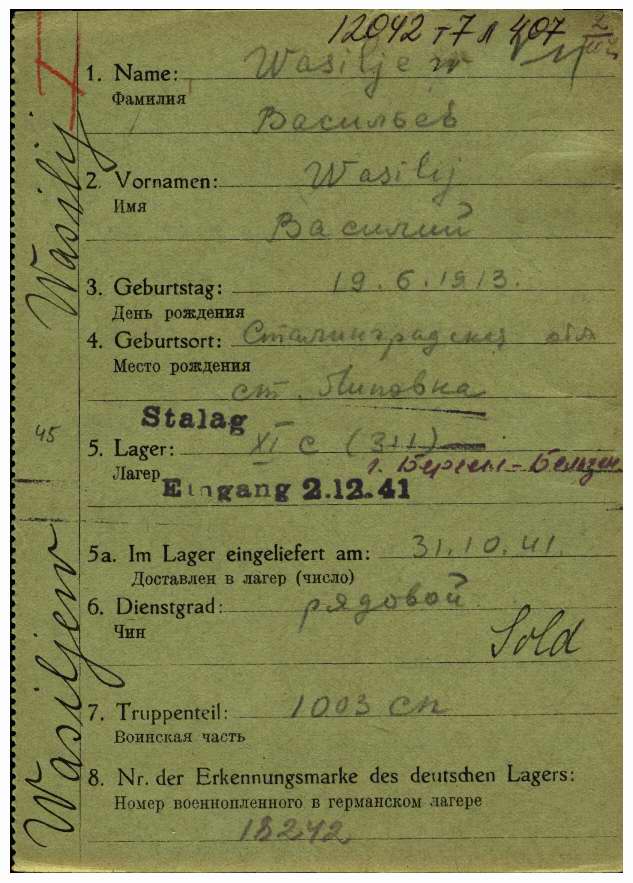 12042 т 7 л 407
1. Name: Wasiljew
Фамилия
Васильев
2. Vornamen: Wasilij
Имя
Василий
3. Geburtstag: 19.6.1913.
День рождения
4. Geburtsort: Сталинградская обл
Место рождения
ст. Липовка
Stalag
5. Lager: XI C (311)
Лагер г. Берген-Бельзен
Eingang 2.12.41
5a. Im Lager eingeliefert am: 31.10.41.
Доставлен в лагер (число)
6. Dienstgrad: рядовой
Чин
Sold
7. Truppenteil: 1003 сп
Воинская часть
8. Nr. der Erkennungsmarke des deutschen Lagers:
Номер военнопленного в германском лагере
18242
Wasiljew Wasilij
45